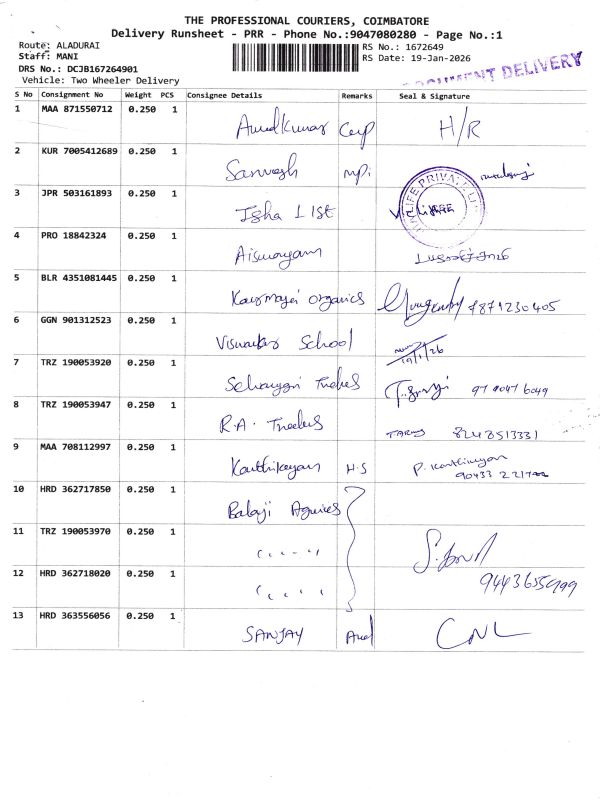 THE PROFESSIONAL COURIERS, COIMBATORE
Delivery Runsheet - PRR - Phone No.:9047080280 - Page No.:1
Route: ALADURAI
Staff: MANI
DRS No.: DCJB167264901
Vehicle: Two Wheeler Delivery
RS No.: 1672649
RS Date: 19-Jan-2026
DOCUMENT DELIVERY
S No Consignment No Weight PCS Consignee Details Remarks Seal & Signature
1 MAA 871550712 0.250 1 H/R
2 KUR 7005412689 0.250 1 Sarvesh
3 JPR 503161893 0.250 1 Isha LIst
4 PRO 18842324 0.250 1
5 BLR 4351081445 0.250 1 organics
6 GGN 901312523 0.250 1 School 19/1/26
7 TRZ 190053920 0.250 1
8 TRZ 190053947 0.250 1 R.A.
9 MAA 708112997 0.250 1 Karthikeyan H.S P. Karthikeyan
10 HRD 362717850 0.250 1 Balaji
11 TRZ 190053970 0.250 1
12 HRD 362718020 0.250 1
13 HRD 363556056 0.250 1 SANJAY